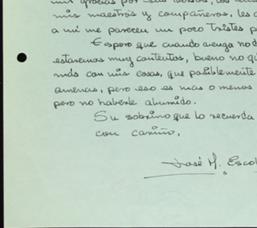 mil gracias por sus
mis maestros y compañeros, les
a mi me parecen un poco tristes p
Espero que cuando venga no d
estaremos muy contentos, bueno no qu
más con mis cosas, que posiblemente
amenas, pero eso es mas o menos
pero no haberte aburrido.
Su sobrino que lo recuerda
con cariño,
José M. Escob